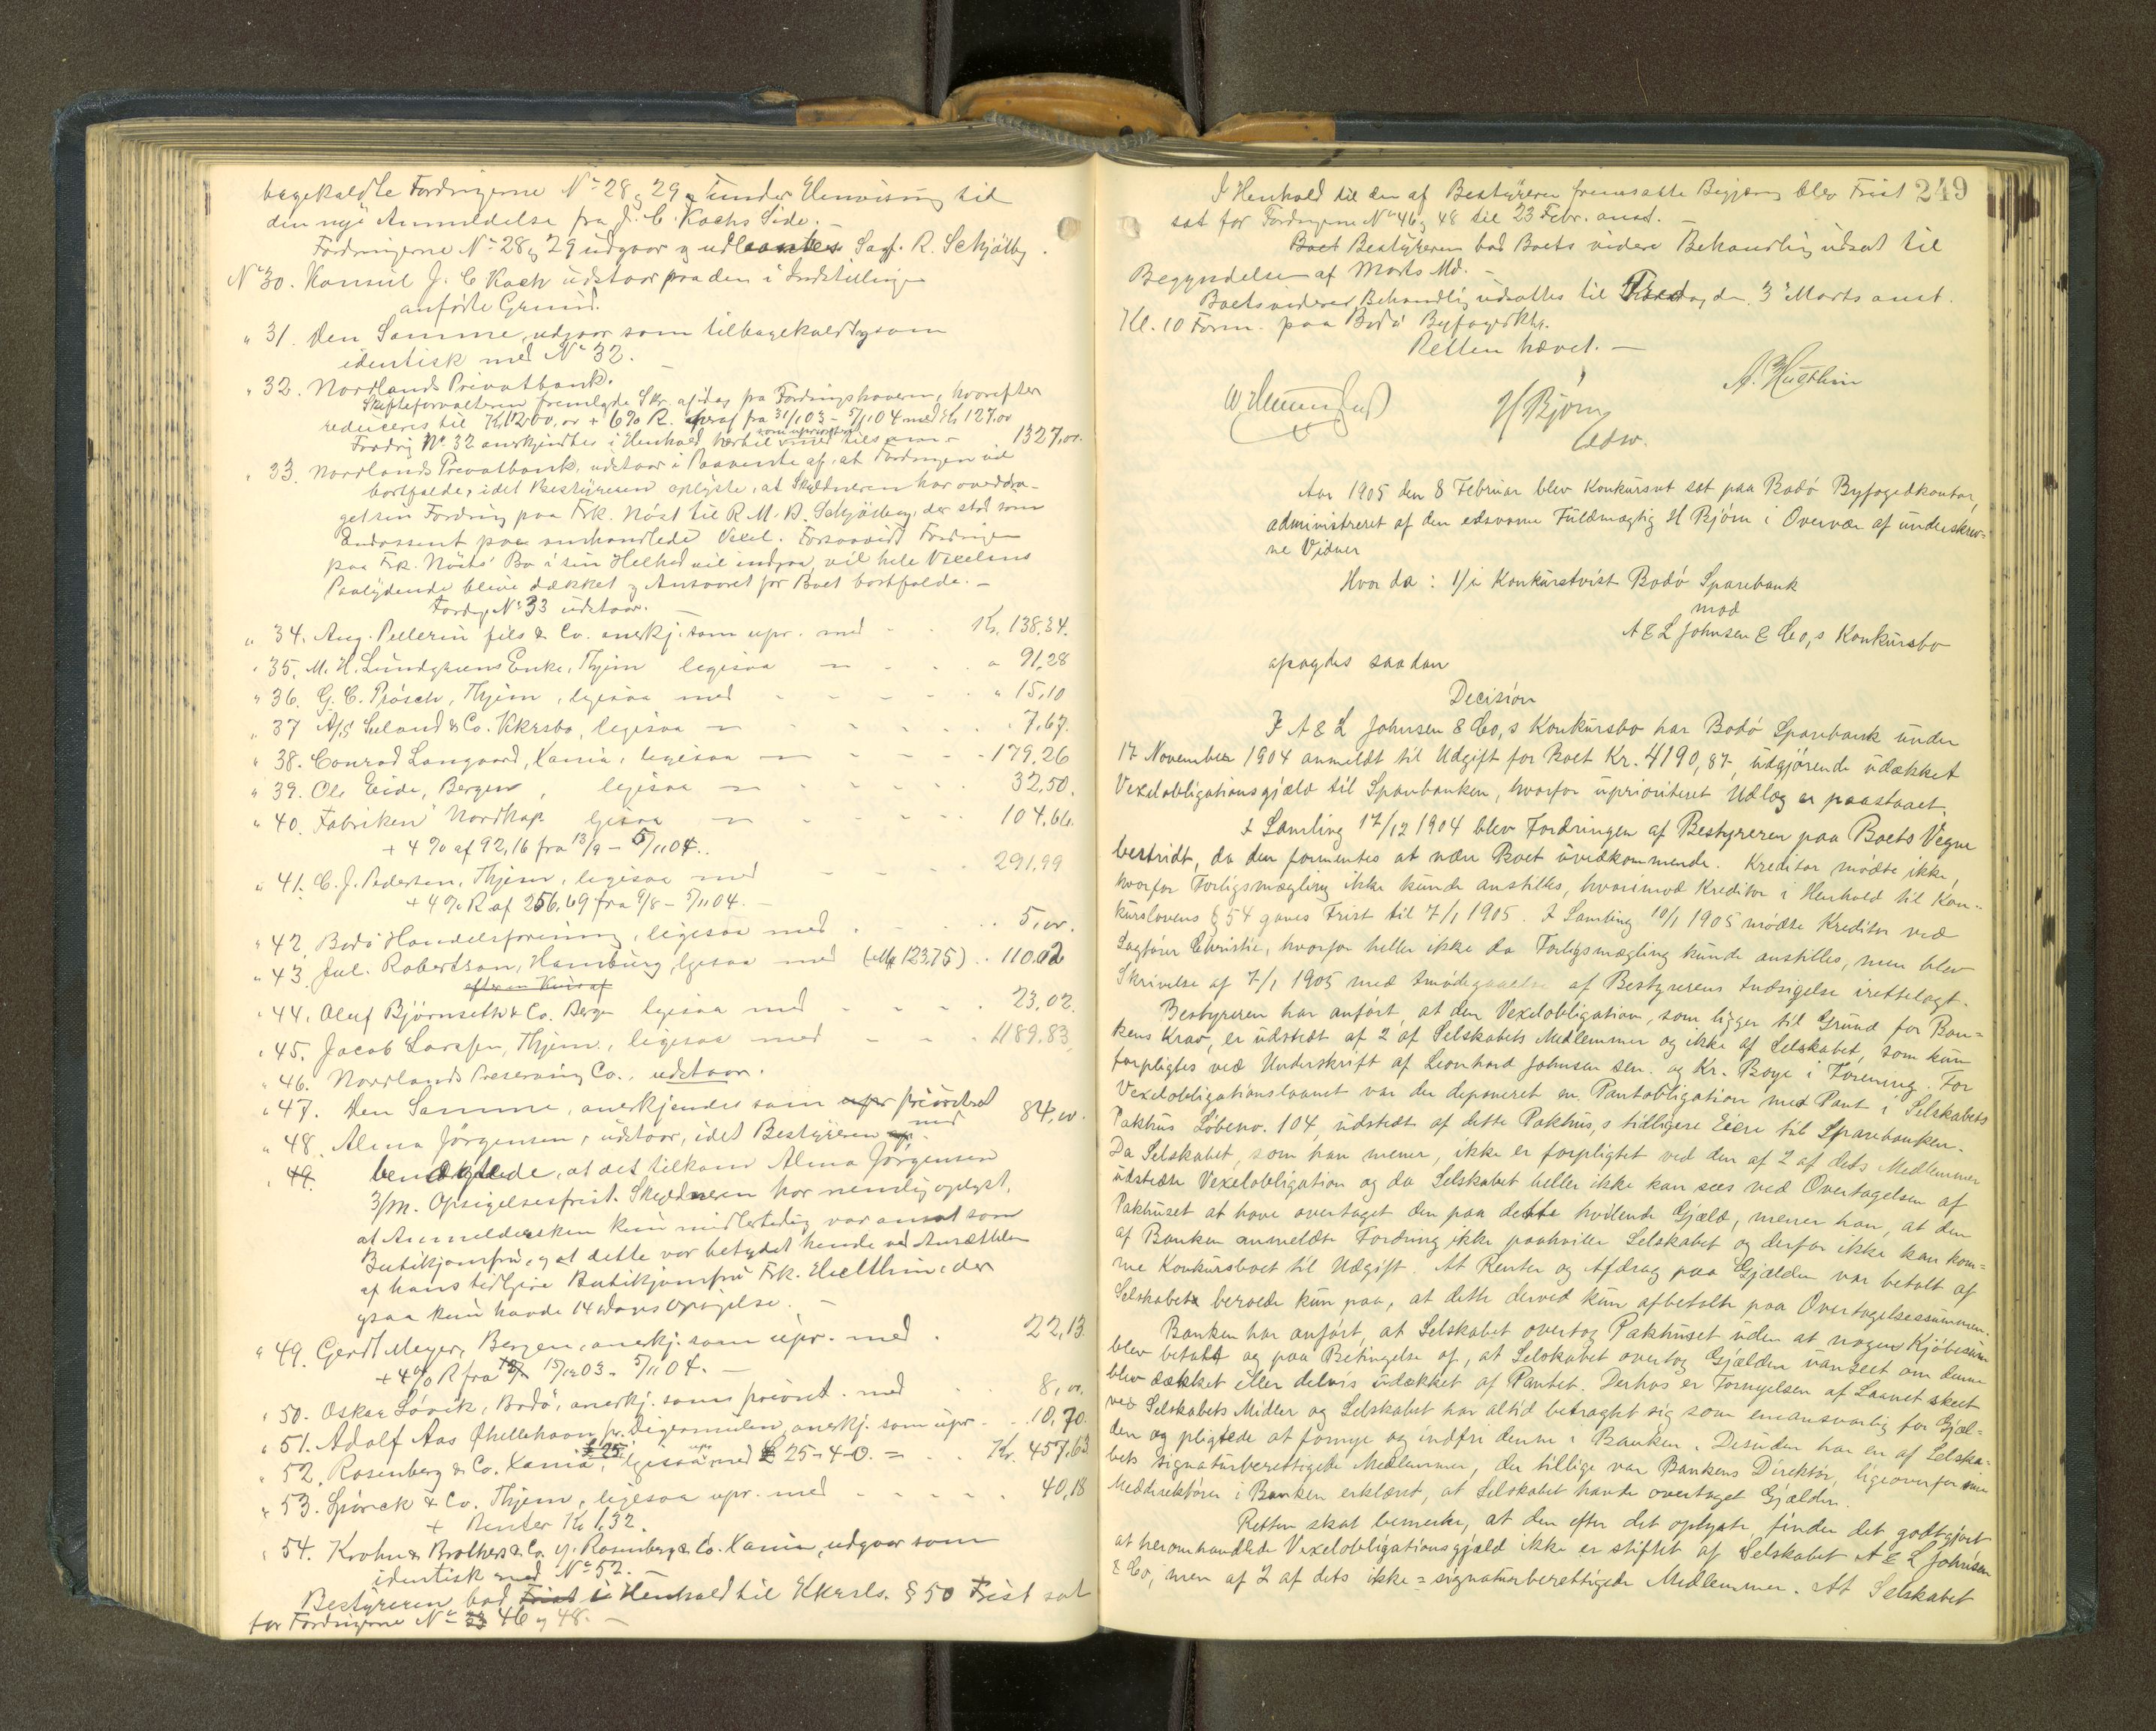 bagekaldte Fordringerne No 28 og 29 under Henvisning til
den nye Anmeldelse fra J. C. Kochs Side.
Fordringerne No 28 og 29 udgaar og udleantes Sagf. R. Schjølby.
No 30. Konsul J. C. Koch udstaar paa den i Indstillingen
anførte Grund.
" 31. Den Samme, udgaar som tilbagekaldt og som
identisk med No 32.
" 32. Nordlands Privatbank.
Skifteforvalteren fremlagde Skr. af idag fra Fordringshaveren, hvorefter
reduceres til Kr. 1200,00 + 6% R. heraf fra 31/1 03 - 5/11 04 med Kr. 127,00
Fordring No. 32 anerkjendtes i Henhold hertil som uprioriteret med tils. 1327,00.
" 33. Nordlands Privatbank, udstaar i Paavente af, at Fordringen vil
bortfalde, idet Bestyreren oplyste, at Skyldneren har overdra-
get sin Fordring paa Frk. Nøst til R. M. B. Schjølberg, der stod som
Endossent paa omhandlede Vexel. Forsaavidt Fordringen
paa Frk. Nøsts Bo i sin Helhed vil indgaa, vil hele Vexelens
Paalydende blive dækket og Ansvaret for Boet bortfalde. -
Fordrg No 33 udstaar.
" 34. Aug. Pellerin fils & Co. anerkj. som upr. med Kr. 138,34.
" 35. M. H. Lundgreens Enke, Thjem ligesaa " 91,28
" 36. G. C. Prösch, Thjem, ligesaa med " 15,10
" 37 A/S Seland & Co. Kkrsbo, ligesaa 7,67.
" 38. Conrad Langaard, Xania, ligesaa 179,26
" 39. Ole Eide, Bergen, ligesaa 32,50.
" 40. Fabriken Nordkap ligesaa 104,66.
+ 4 % af 92,16 fra 13/9 - 5/11 04.
" 41. C. J. Pedersen, Thjem, ligesaa med 291,99
+ 4% R af 256,69 fra 9/8 - 5/11 04. -
" 42. Bodø Handelsforening, ligesaa med 5,00.
" 43. Jul. Robertson, Hamburg, ligesaa med (Mk 123,75) 110,02
efter en Kurs af
" 44. Oluf Bjørnseth & Co. Bergen ligesaa med 23,02.
" 45. Jacob Larsen, Thjem, ligesaa med 1189,83.
" 46. Nordlands Preserving Co., udstaar.
" 47. Den Samme, anerkjendes som upr prioriteret
med 84,00.
" 48. Alma Jørgensen, udstaar, idet Bestyreren op
" 49. benægtede, at det tilkom Alma Jørgensen
3/m. Opsigelsesfrist. Skyldneren har nemlig oplyst,
at Anmeldersken kun midlertidig var ansat som
Butikjomfru, og at dette var betydet hende ved Ansættelsen
af hans tidligere Butikjomfru Frk. Huethin, der
ogsaa kun havde 14 Dages Opsigelse. -
" 49. Gerdt Meyer, Bergen, anerkj. som upr. med 22,13.
+ 4% R fra 15/12 03 - 5/11 04. -
" 50. Oskar Løvik, Bodø, anerkj. som priorit. med 8,00.
" 51. Adolf Aas Øhellehavn pr. Digermulen, anerkj. som upr. 10,70.
" 52. Rosenberg & Co. Xania, ligesaa upr. med £ 25-4-0. = Kr. 457,63
" 53. Spørck & Co. Thjem, ligesaa upr. med 40,18
+ Renter Kr 1,32.
" 54. Krohn & Brothers & Co. v. Rosenberg & Co. Xania, udgaar som
identisk med No 52.
Bestyreren bad Frist i Henhold til Kkrsls. § 50 Frist sat
for Fordringerne No 33 46 og 48. -
249
I Henhold til den af Bestyreren fremsatte Begjæring blev Frist
sat for Fordringerne No 46 og 48 til 23 Febr. anst. -
Boet Bestyreren bad Boets videre Behandling udsat til
Begyndelsen af Marts Md. -
Boets videre Behandling udsattes til Fredag den 3 Marts anst.
Kl. 10 Form. paa Bodø Byfogedktr.
Retten hævet. -
H Bjørn
edsv.
A. Huethin
Aar 1905 den 8 Februar blev Konkursret sat paa Bodø Byfogedkontor,
administreret af den edsvorne Fuldmægtig H Bjørn i Overvær af underskrev-
ne Vidner
Hvor da: 1/ i Konkurstvist Bodø Sparebank
mod
A & L Johnsen & Co,s Konkursbo
afsagdes saadan
Decision
I A & L Johnsen & Co,s Konkursbo har Bodø Sparebank under
17 November 1904 anmeldt til Udgift for Boet Kr. 4190,87, udgjørende udækket
Vexelobligationsgjæld til Sparebanken, hvorfor uprioriteret Udlæg er paastaaet.
I Samling 17/12 1904 blev Fordringen af Bestyreren paa Boets Vegne
bestridt, da den formentes at være Boet uvedkommende. Kreditor mødte ikke,
hvorfor Forligsmægling ikke kunde anstilles, hvorimod Kreditor i Henhold til Kon-
kurslovens § 54 gaves Frist til 7/1 1905. I Samling 10/1 1905 mødte Kreditor ved
Sagfører Christie, hvorfor heller ikke da Forligsmægling kunde anstilles, men blev
Skrivelse af 7/1 1905 med Imødegaaelse af Bestyrerens Indsigelse irettelagt.
Bestyreren har anført, at den Vexelobligation, som ligger til Grund for Ban-
kens Krav, er udstedt af 2 af Selskabets Medlemmer og ikke af Selskabet, som kun
forpligtes ved Underskrift af Leonhard Johnsen sen. og Kr. Boye i Forening. For
Vexelobligationslaanet var der deponeret en Pantobligation med Pant i Selskabets
Pakhus Løbeno. 104, udstedt af dette Pakhus,s tidligere Eiere til Sparebanken.
Da Selskabet, som han mener, ikke er forpligtet ved den af 2 af dets Medlemmer
udstedte Vexelobligation og da Selskabet heller ikke kan sees ved Overtagelsen af
Pakhuset at have overtaget den paa dette hvilende Gjæld, mener han, at den
af Banken anmeldte Fordring ikke paahviler Selskabet og derfor ikke kan kom-
me Konkursboet til Udgift. At Renter og Afdrag paa Gjælden var betalt af
Selskabet beroede kun paa, at dette derved kun afbetalte paa Overtagelsessummen.
Banken har anført, at Selskabet overtog Pakhuset uden at nogen Kjøbesum
blev betalt og paa Betingelse af, at Selskabet overtog Gjælden uanseet om denne
blev dækket eller delvis udækket af Pantet. Derhos er Fornyelsen af Laanet skeet
ved Selskabets Midler og Selskabet har altid betragtet sig som eneansvarlig for Gjæl-
den og pligtede at fornye og indfri denne i Banken. Desuden har en af Selska-
bets signaturberettigede Medlemmer, der tillige var Bankens Direktør, ligeoverfor sin
Meddirektører i Banken erklæret, at Selskabet havde overtaget Gjælden.
Retten skal bemerke, at den efter det oplyste finder det godtgjort
at heromhandlede Vexelobligationsgjæld ikke er stiftet af Selskabet A & L Johnsen
& Co, men af 2 af dets ikke-signaturberettigede Medlemmer. At Selskabet